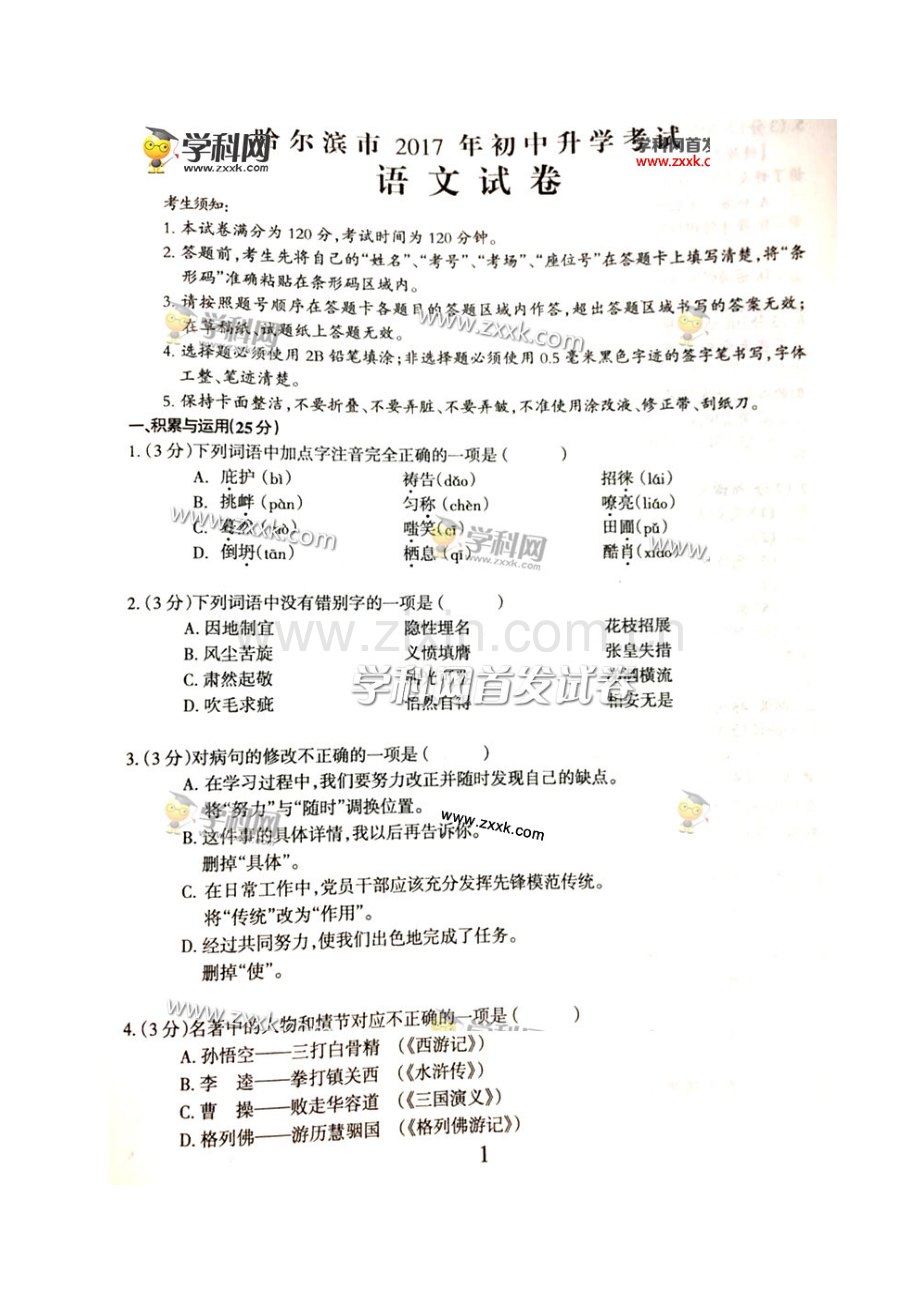 哈尔滨市 2017 年初中升学考试
学科网
www.zxxk.com
学科网首发
www.zxxk.c
语文试卷
考生须知:
1. 本试卷满分为 120 分,考试时间为 120 分钟。
2. 答题前,考生先将自己的“姓名”、“考号”、“考场”、“座位号”在答题卡上填写清楚,将“条
形码”准确粘贴在条形码区域内。
3. 请按照题号顺序在答题卡各题目的答题区域内作答,超出答题区域书写的答案无效;
在草稿纸、试题纸上答题无效。
学科网
www.zxxk.com
4. 选择题必须使用 2B 铅笔填涂;非选择题必须使用 0.5 毫米黑色字迹的签字笔书写,字体
工整、笔迹清楚。
5. 保持卡面整洁,不要折叠、不要弄脏、不要弄皱,不准使用涂改液、修正带、刮纸刀。
一、积累与运用(25 分)
1. (3 分)下列词语中加点字注音完全正确的一项是( )
A. 庇护 (bì) 祷告(dǎo) 招徕 (lái)
B. 挑衅 (pàn) 匀称 (chèn) 嘹亮(liáo)
C. 嗤笑(cī) 田圃(pǔ)
D. 倒坍(tān) 栖息 (qī) 酷肖(xiāo)
www.zxxk.com
学科网
zxxk.com
2. (3 分)下列词语中没有错别字的一项是( )
A. 因地制宜 隐性埋名 花枝招展
www.zixin.com.cn
B. 风尘苦旋 义愤填膺 张皇失措
C. 肃然起敬 横流
学科网首发试卷
D. 吹毛求疵 怡然自得 相安无是
3. (3 分)对病句的修改不正确的一项是( )
A. 在学习过程中,我们要努力改正并随时发现自己的缺点。
将“努力”与“随时”调换位置。
学科网
www.zxxk.com
B. 这件事的具体详情,我以后再告诉你。
删掉“具体”。
C. 在日常工作中,党员干部应该充分发挥先锋模范传统。
将“传统”改为“作用”。
D. 经过共同努力,使我们出色地完成了任务。
删掉“使”。
www.zxxk.com
4. (3 分)名著中的人物和情节对应不正确的一项是( )
A. 孙悟空——三打白骨精 (《西游记》)
B. 李 逵——拳打镇关西 (《水浒传》)
C. 曹 操——败走华容道 (《三国演义》)
D. 格列佛——游历慧骃国 (《格列佛游记》)
1